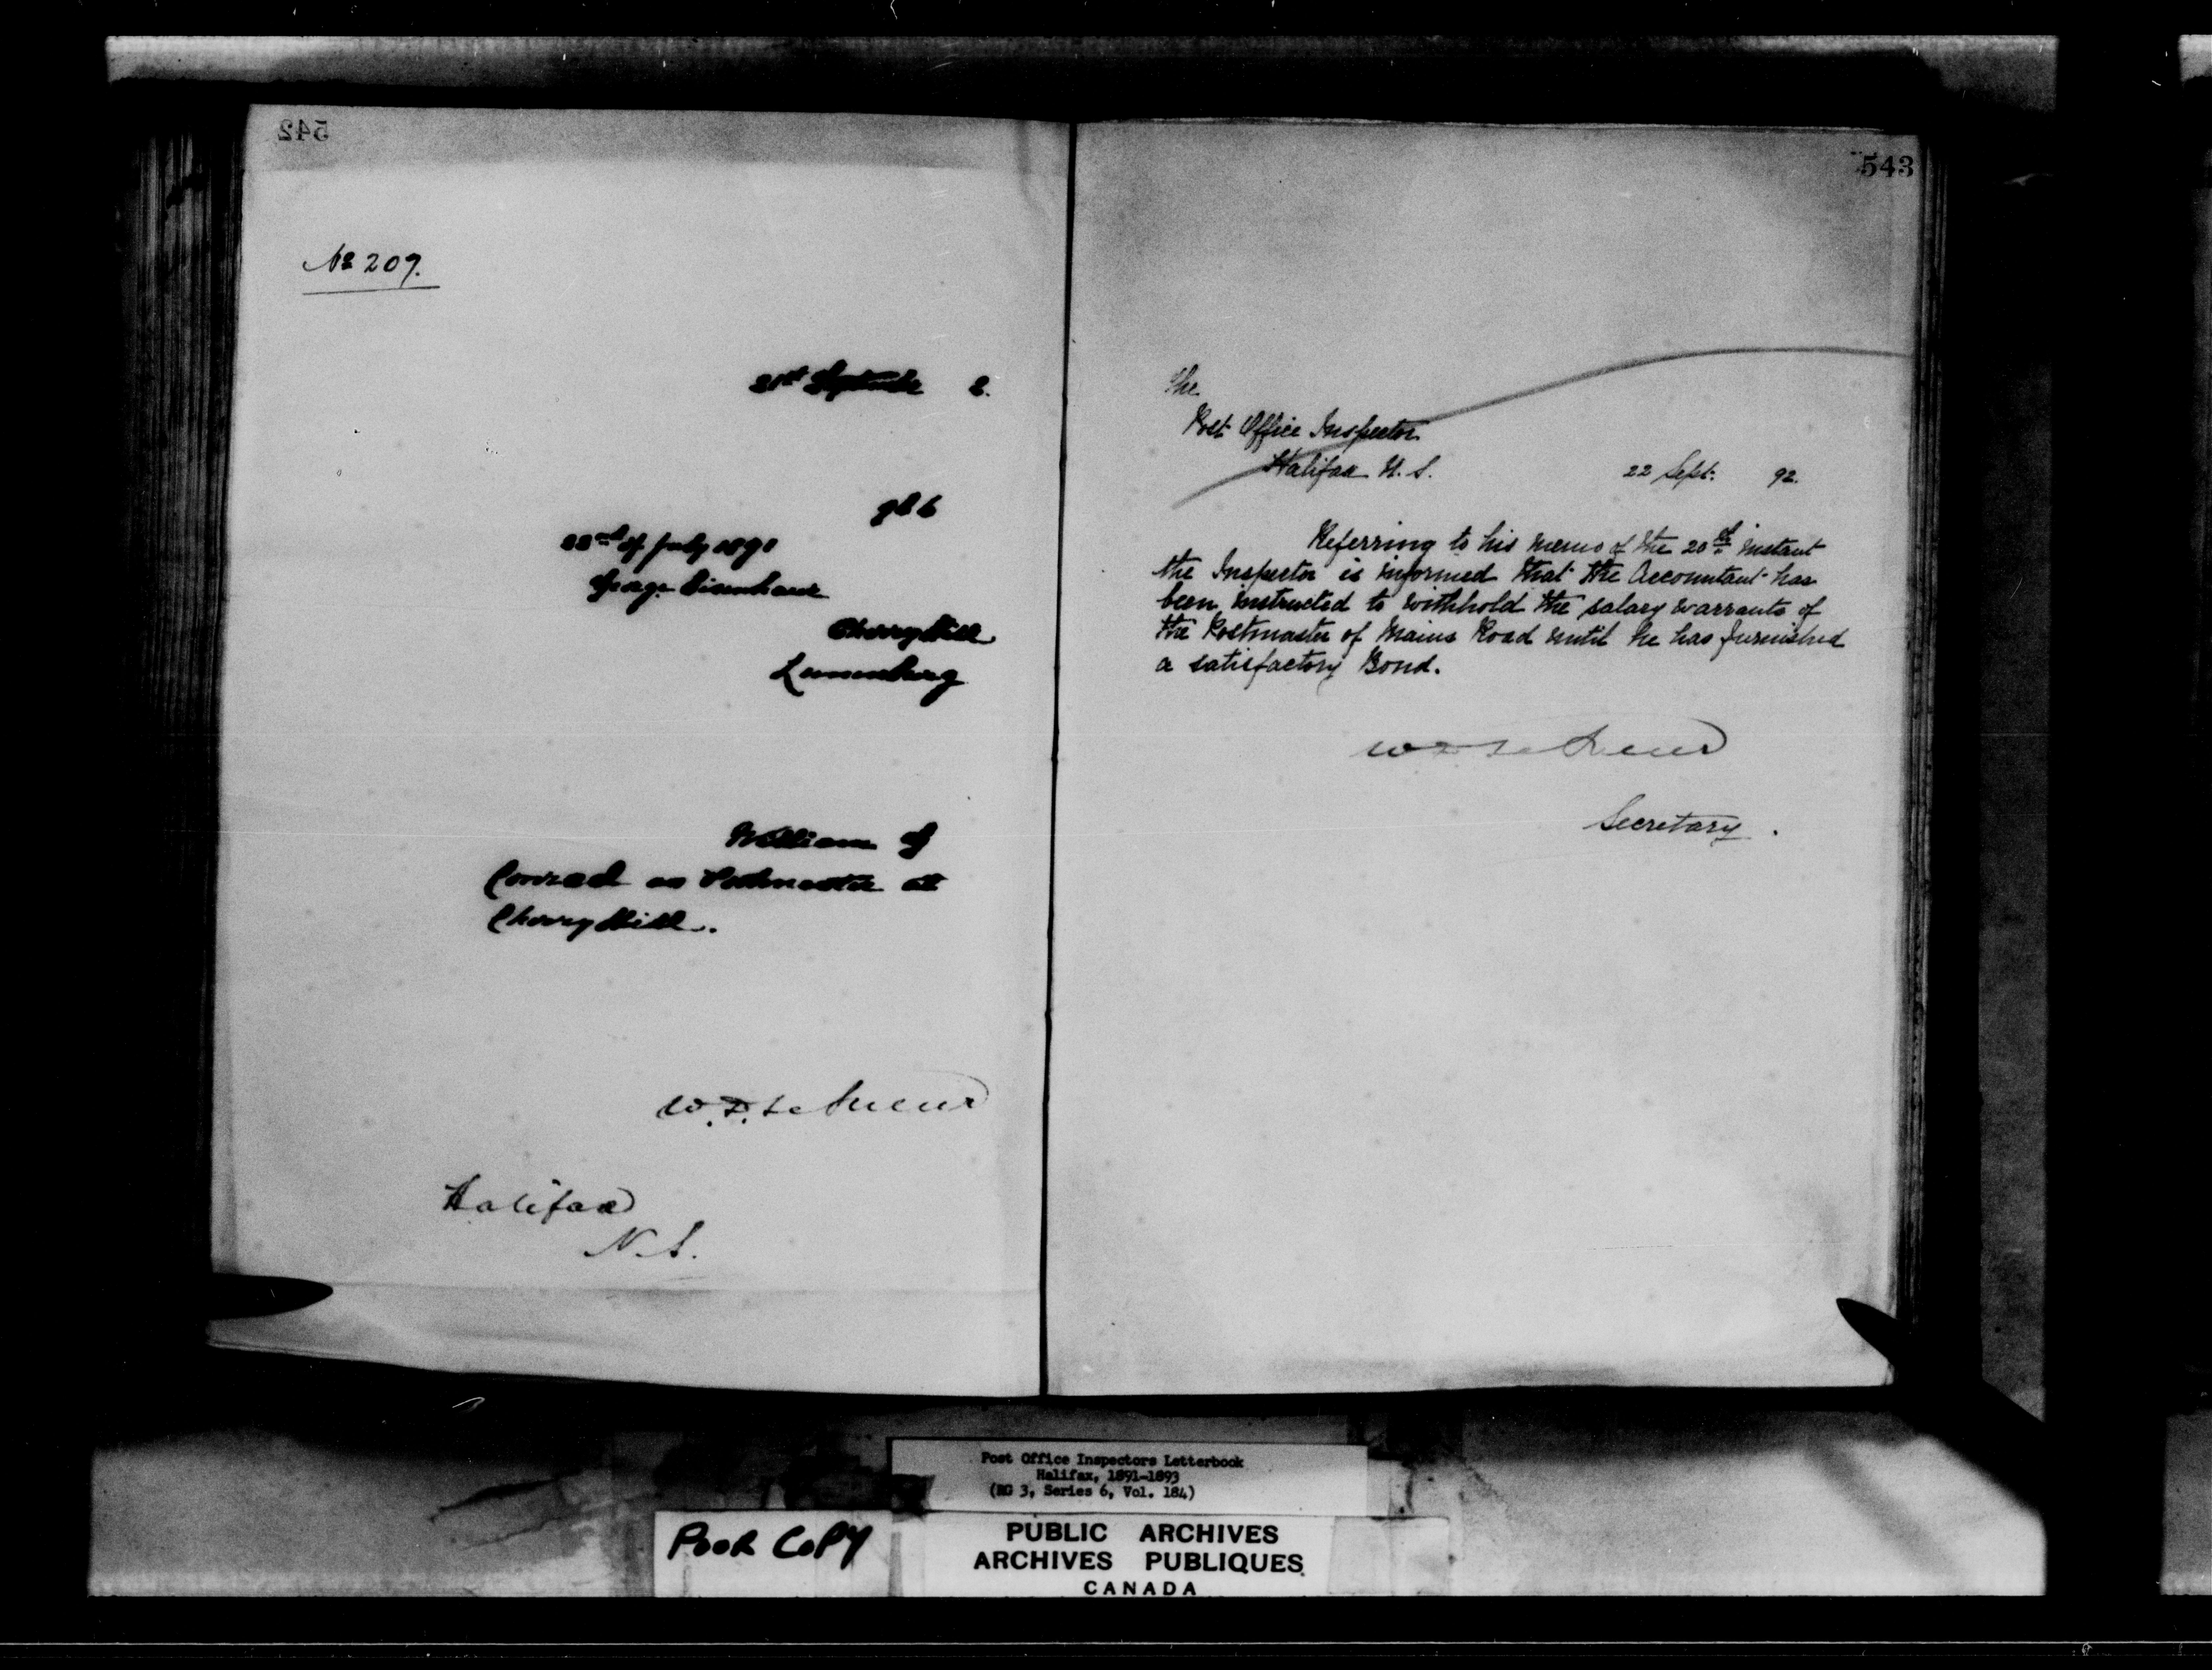 542
No 209.
21st September 2.
22nd of July 1891
George Eisenhaur
Cherry Hill
Lunenburg
William
Conrad as Postmaster at
Cherry Hill.
W.D. LeSueur
Halifax
N.S.
543
The
Post Office Inspector
Halifax N.S. 22 Sept. 92.
Referring to his memo of the 20th instant
the Inspector is informed that the Accountant has
been instructed to withhold the salary warrants of
the Postmaster of Mains Road until he has furnished
a satisfactory Bond.
W D LeSueur
Secretary.
Post Office Inspectors Letterbook
Halifax, 1891-1893
(RG 3, Series 6, Vol. 184)
POOR COPY
PUBLIC ARCHIVES
ARCHIVES PUBLIQUES
CANADA